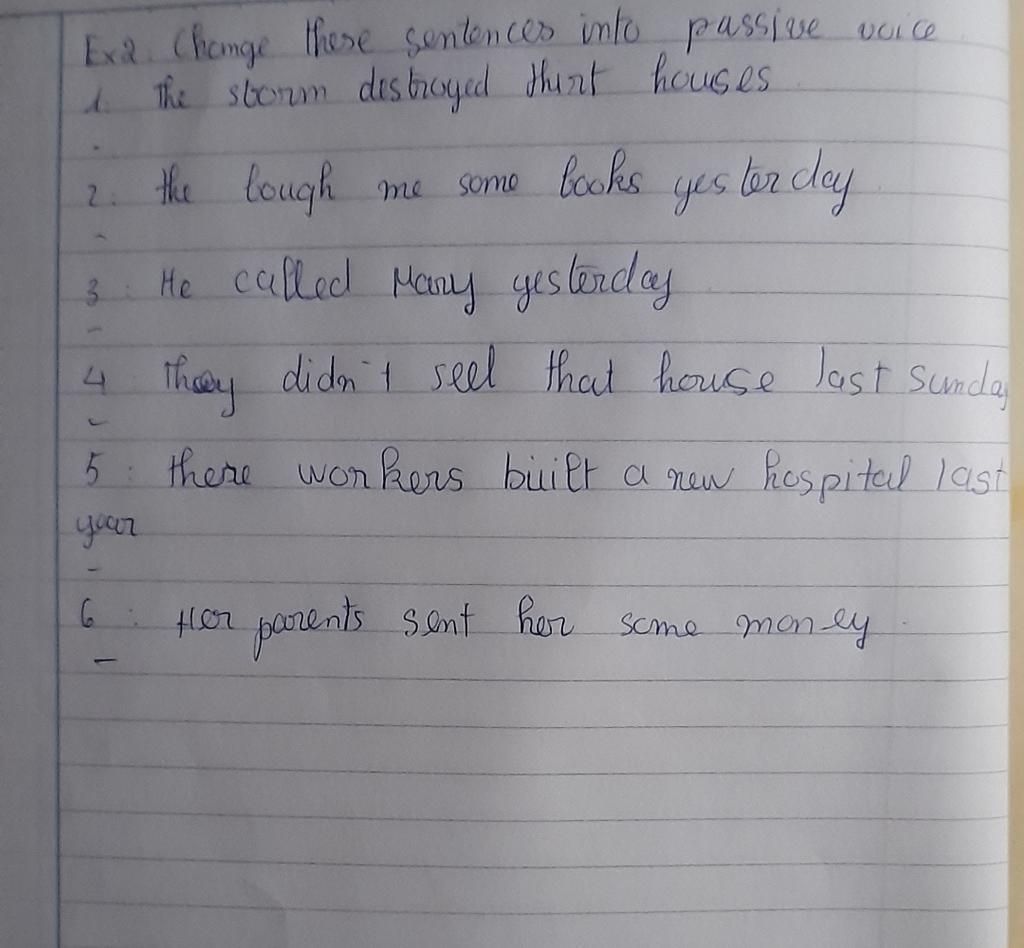 Ex2. Change these sentences into passive voice
1. The storm destroyed thirt houses
2. the bough me some books yesterday
3. He called Mary yesterday
4 They didn't seel that house last Sunday
5: these workers built a new hospital last
year
6: Her parents sent her some money.